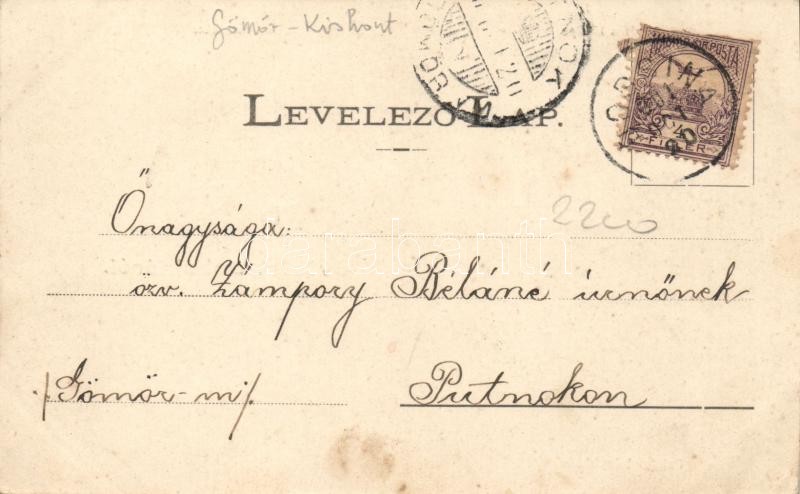 Gömör-Kishont
LEVELEZŐ LAP.
MAGYAR KIR. POSTA
4
FILLÉR
2200
Őnagysága:
özv. Zámpory Béláné úrnőnek
/Gömör-m/.
Putnokon
darabanth